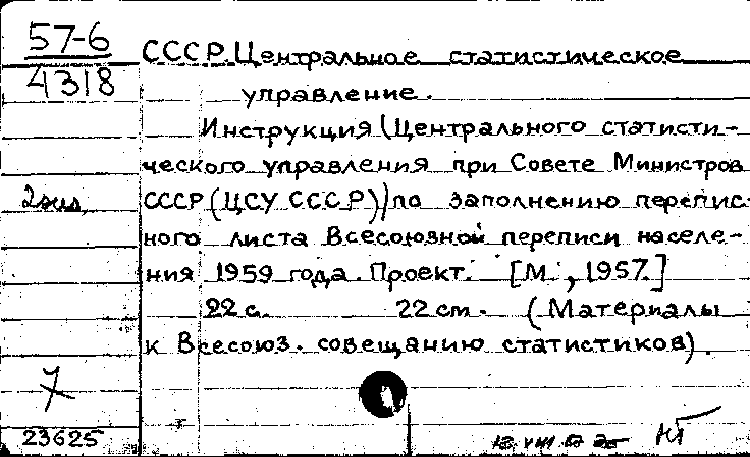 57-6
4318
СССР. Центральное статистическое
управление.
Инструкция (Центрального статисти-
ческого управления при Совете Министров
2 экз. СССР (ЦСУ СССР)) по заполнению перепис-
ного листа Всесоюзной переписи населе-
ния 1959 года. Проект. [М., 1957.]
22 с. 22 cm. (Материалы
к Всесоюз. совещанию статистиков).
23625